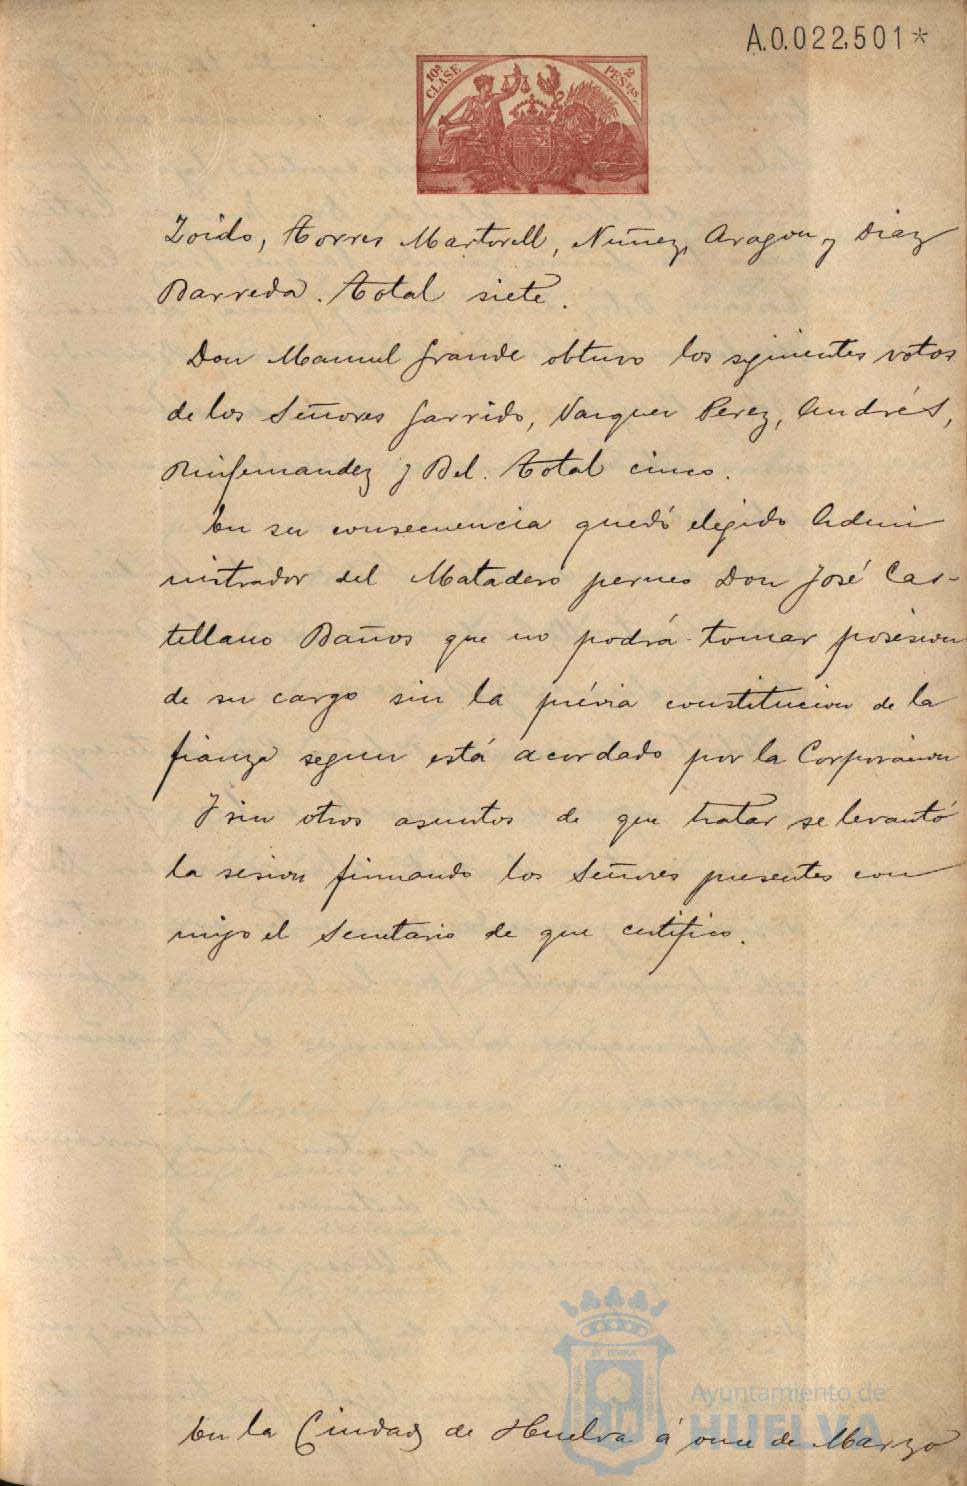 A.0.022,501*
10ª CLASE
2 PESTAS.
Zoido, Torres Martorell, Nuñez, Aragon y Diaz
Barreda. Total siete.
Don Manuel Grande obtuvo los siguientes votos
de los Señores Garrido, Vazquez Perez, Andrés,
Rinfernandez y Bel. Total cinco.
En su consecuencia quedó elegido Admi
nistrador del Matadero Don José Cas-
tellano Baños que no podrá tomar posesion
de su cargo sin la prévia constitucion de la
fianza segun está acordado por la Corporacion
Y sin otros asuntos de que tratar se levantó
la sesion firmando los Señores presentes con
migo el Secretario de que certifico.
ET TERRA
Ayuntamiento de
HUELVA
En la Ciudad de Huelva á once de Marzo